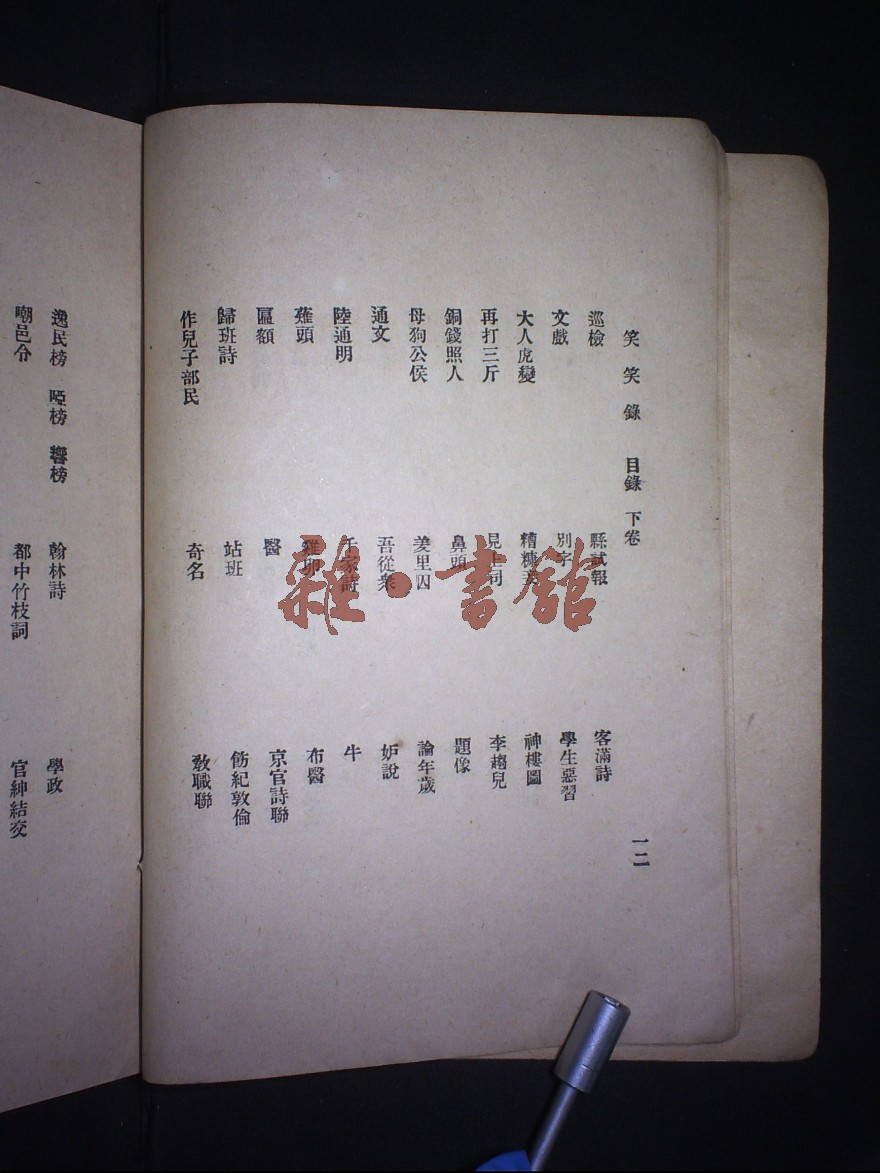 笑笑錄 目錄 下卷 一二
巡檢 縣試報 客滿詩
文戲 別字 學生惡習
大人虎變 糟糠 神樓圖
再打三斤 見上司 李趨兒
銅錢照人 鼻頭 題像
母狗公侯 羑里囚 論年歲
通文 吾從衆 妒說
陸通明 千家詩 牛
薤頭 雞卵 布醫
匾額 醫 京官詩聯
歸班詩 站班 飭紀敦倫
作兒子部民 奇名 敎職聯
逸民榜 啞榜 響榜 翰林詩 學政
嘲邑令 都中竹枝詞 官紳結交
雜·書館